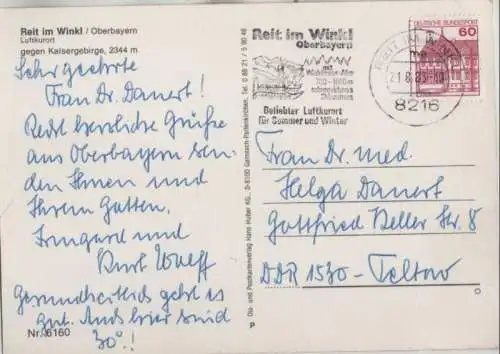 Reit im Winkl / Oberbayern
Luftkurort
gegen Kaisergebirge, 2344 m
Sehr geehrte
Frau Dr. Danert!
Recht herzliche Grüße
aus Oberbayern sen-
den Ihnen und
Ihrem Gatten,
Irmgard und
Kurt Wolff
Gesundheitlich geht es
gut. Auch hier sind
30°.!
Nr. 6160
Dia- und Postkartenverlag Hans Huber KG. D-8100 Garmisch-Partenkirchen, Tel. 0 88 21 / 5 80 46
P
Reit im Winkl
Oberbayern
mit
Winklmoos-Alm
Beliebter Luftkurort
für Sommer und Winter
REIT IM WINKL
21.8.83
8216
DEUTSCHE BUNDESPOST
60
Frau Dr. med.
Helga Danert
Gottfried Keller Str. 8
DDR 1530 - Teltow